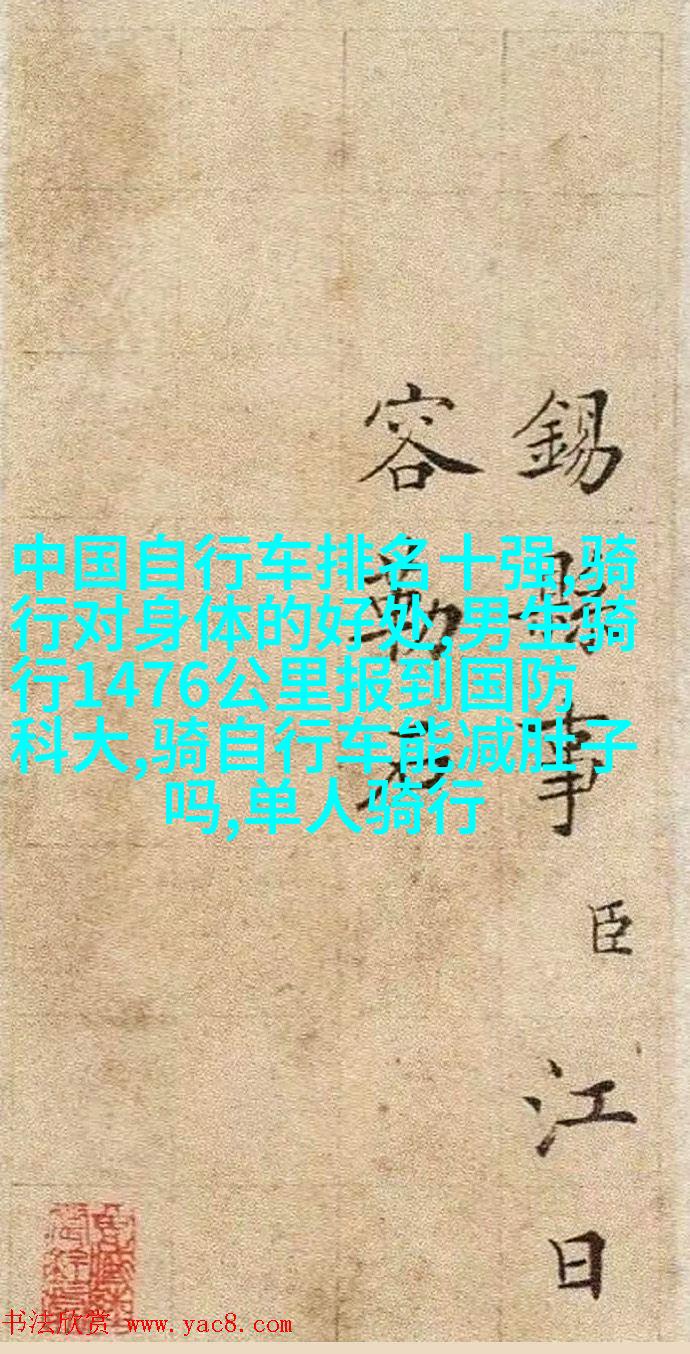 中国自行车排名十强,骑
行对身体的好处,男生骑
行1476公里报到国防
科大,骑自行车能减肚子
吗,单人骑行
錫縣事臣江日
容勒
书法欣赏 www.yac8.com